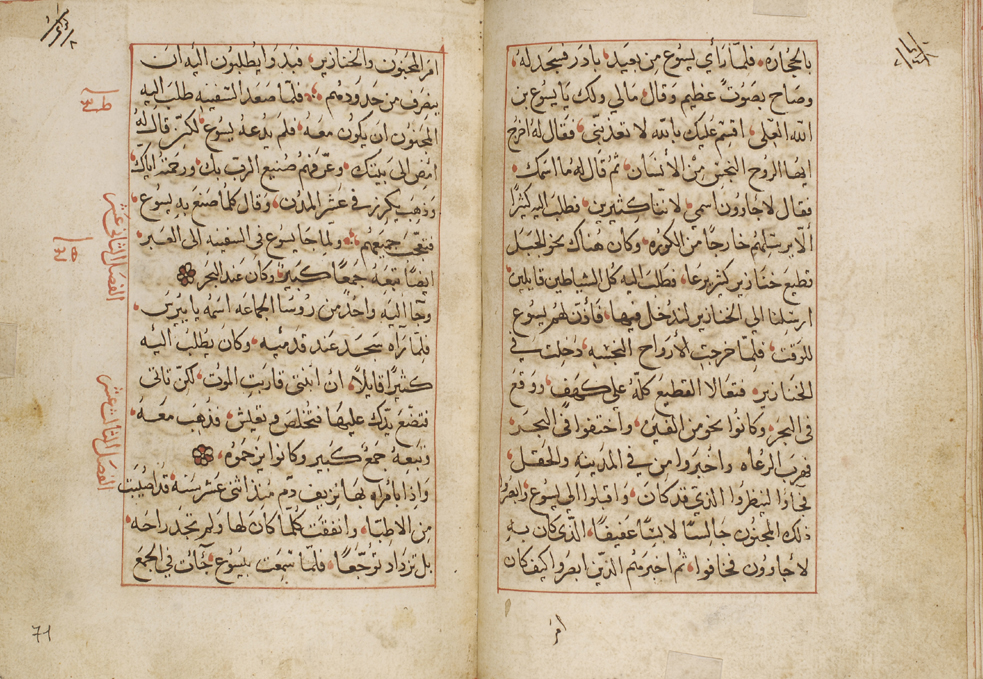 بالحجاره. فلمّا رأي يسوع من بعيد بادر فسجد له
وصاح بصوت عظيم وقال مالي ولك يا يسوع بن
الله العلي اقسم عليك بالله لا تعذبني فقال له اخرج
ايها الروح النجس من الانسان ثم قال له ما اسمك
فقال لاجاوون اسمي لاننا كثيرين. وطلب اليه كثيرًا
الا يرسلهم خارجا من الكوره. وكان هناك نحو الجبل
قطيع خنازير كثير يرعا. وطلب اليه كل الشياطين قايلين
ارسلنا الي الخنازير لندخل فيها. فأذن لهم يسوع
للوقت فلمّا خرجت الأرواح النجسه دخلت في
الخنازير فتعالا القطيع كلّه على كهف ووقع
في البحر وكانوا نحو من الفين واختنقوا في البحر
فهرب الرعاه واخبروا من في المدينه والحقل
فجاؤا لينظروا الذي قد كان واقبلوا الي يسوع وابصروا
ذلك المجنون جالسًا لابسًا عفيفًا الذي كان به
لاجاوون فخافوا ثم اخبروهم الذين ابصروا كيف كان
امر
امر المجنون والخنازير. فبدوا يطلبون اليه ان
ينصرف من حدودهم فلمّا صعد السفينه طلب اليه
المجنون ان يكون معه. فلم يدعه يسوع لكن قال له
امض الى بيتك وعرفهم صنيع الرب بك ورحمته اياك
وذهب يكرز في عشر المدن. وقال كلما صنع به يسوع
فتعجب جميعهم ولما جا يسوع في السفينه الى العبر
الفصل الثاني عشر
ايضًا تبعه جمعًا كبير وكان عند البحر
وجا اليه واحدٌ من روسا الجماعه اسمه يايرس
فلمّا رآه سجد عند قدميه وكان يطلب اليه
كثيرًا قايلاً ان ابنتي قاربت الموت لكن تاتي
فتضع يدك عليها فتخلص وتعيش فذهب معه
وتبعه جمع كبير وكانوا يزحموه
الفصل الثالث عشر
واذا بامراه بها نزيف دم منذ اثنى عشر سنه قد اصيبت
من الاطبا وانفقت كلّما كان لها ولم تجد راحه
بل تزداد توجّعًا فلمّا سمعت بيسوع جآت في الجمع
71